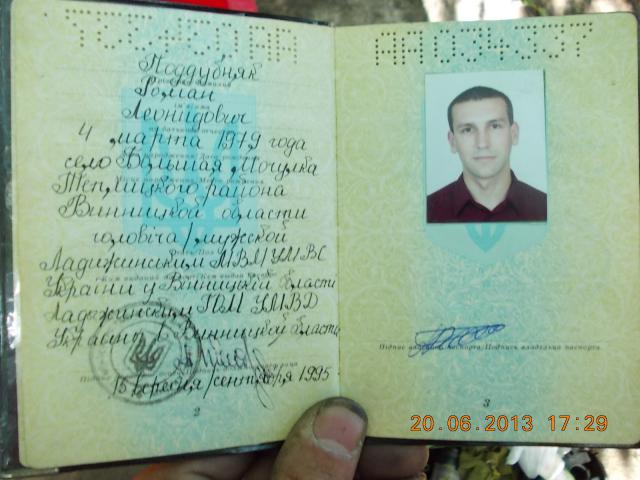 АА034337
Поддубняк
Роман
Леонидович
4 марта 1979 года
село Большая Мочулка
Теплицкого района
Винницкой области
чоловіча/мужской
Ладижинським МВМ УМВС
України у Вінницькій області
Ладыжинским ГОМ УМВД
Украины в Винницкой области
15 вересня/сентября 1995
2
Підпис власника паспорта/Подпись владельца паспорта
3
20.06.2013 17:29